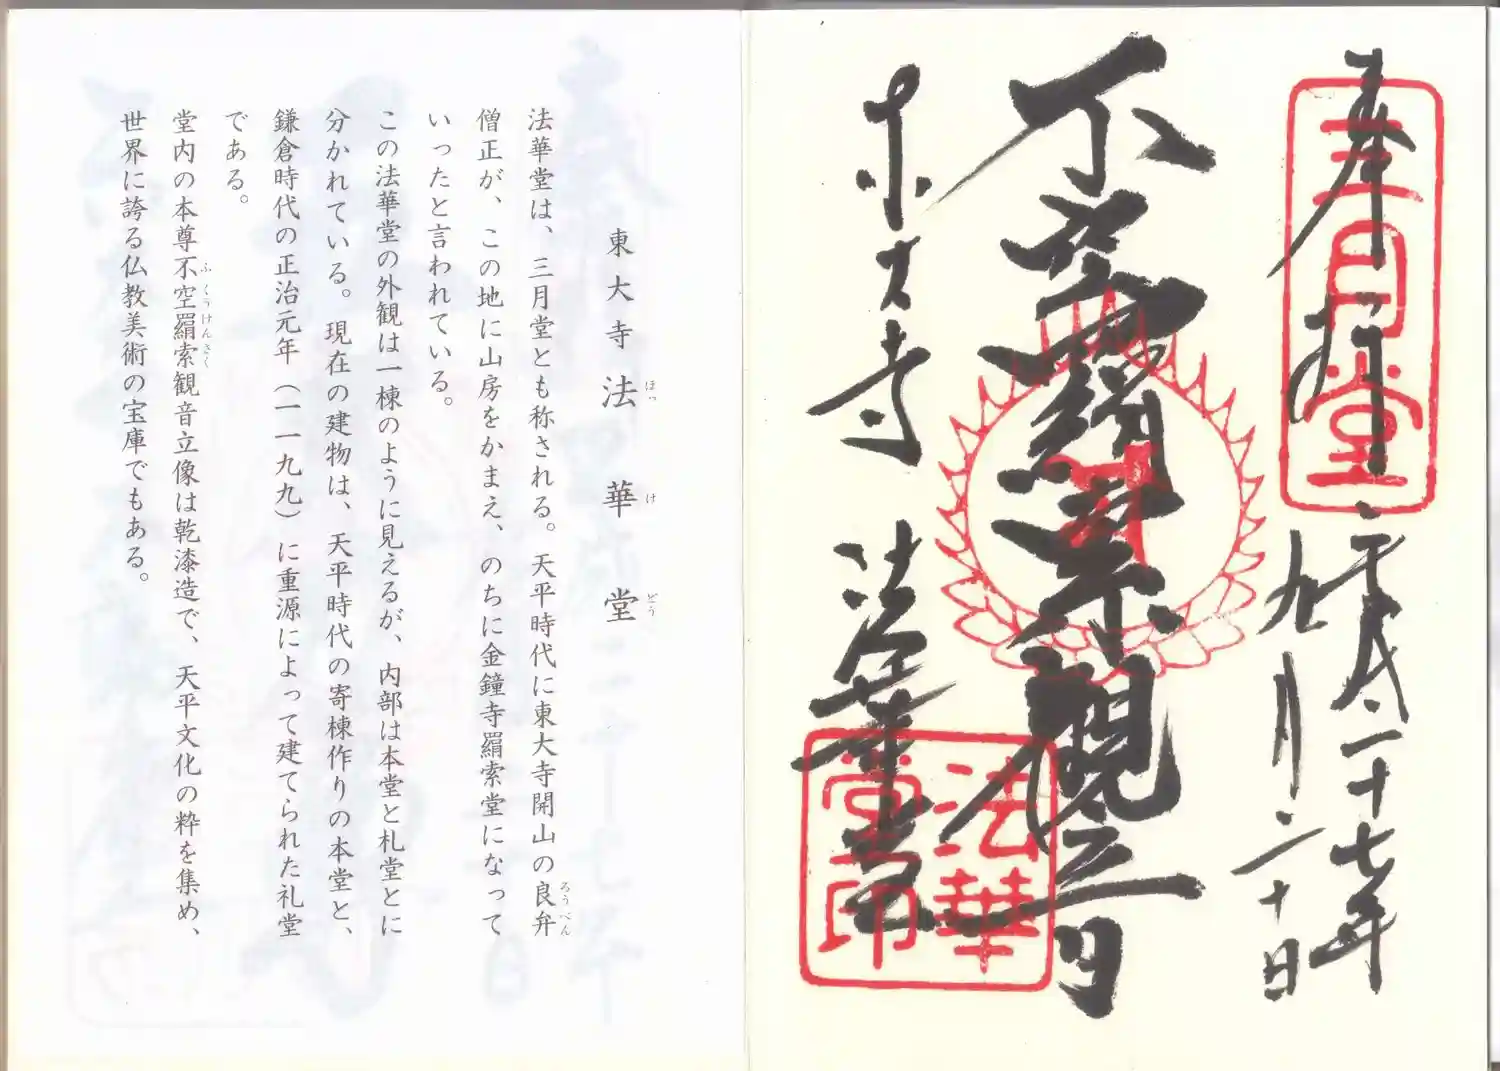 奉拝
三月堂
平成二十七年
九月二十日
不空羂索観音
東大寺 法華堂
法華堂印
東大寺 法華堂
ほっ け どう
法華堂は、三月堂とも称される。天平時代に東大寺開山の良弁
ろうべん
僧正が、この地に山房をかまえ、のちに金鐘寺羂索堂になって
いったと言われている。
この法華堂の外観は一棟のように見えるが、内部は本堂と札堂とに
分かれている。現在の建物は、天平時代の寄棟作りの本堂と、
鎌倉時代の正治元年（一一九九）に重源によって建てられた礼堂
である。
堂内の本尊不空羂索観音立像は乾漆造で、天平文化の粋を集め、
ふくうけんさく
世界に誇る仏教美術の宝庫でもある。